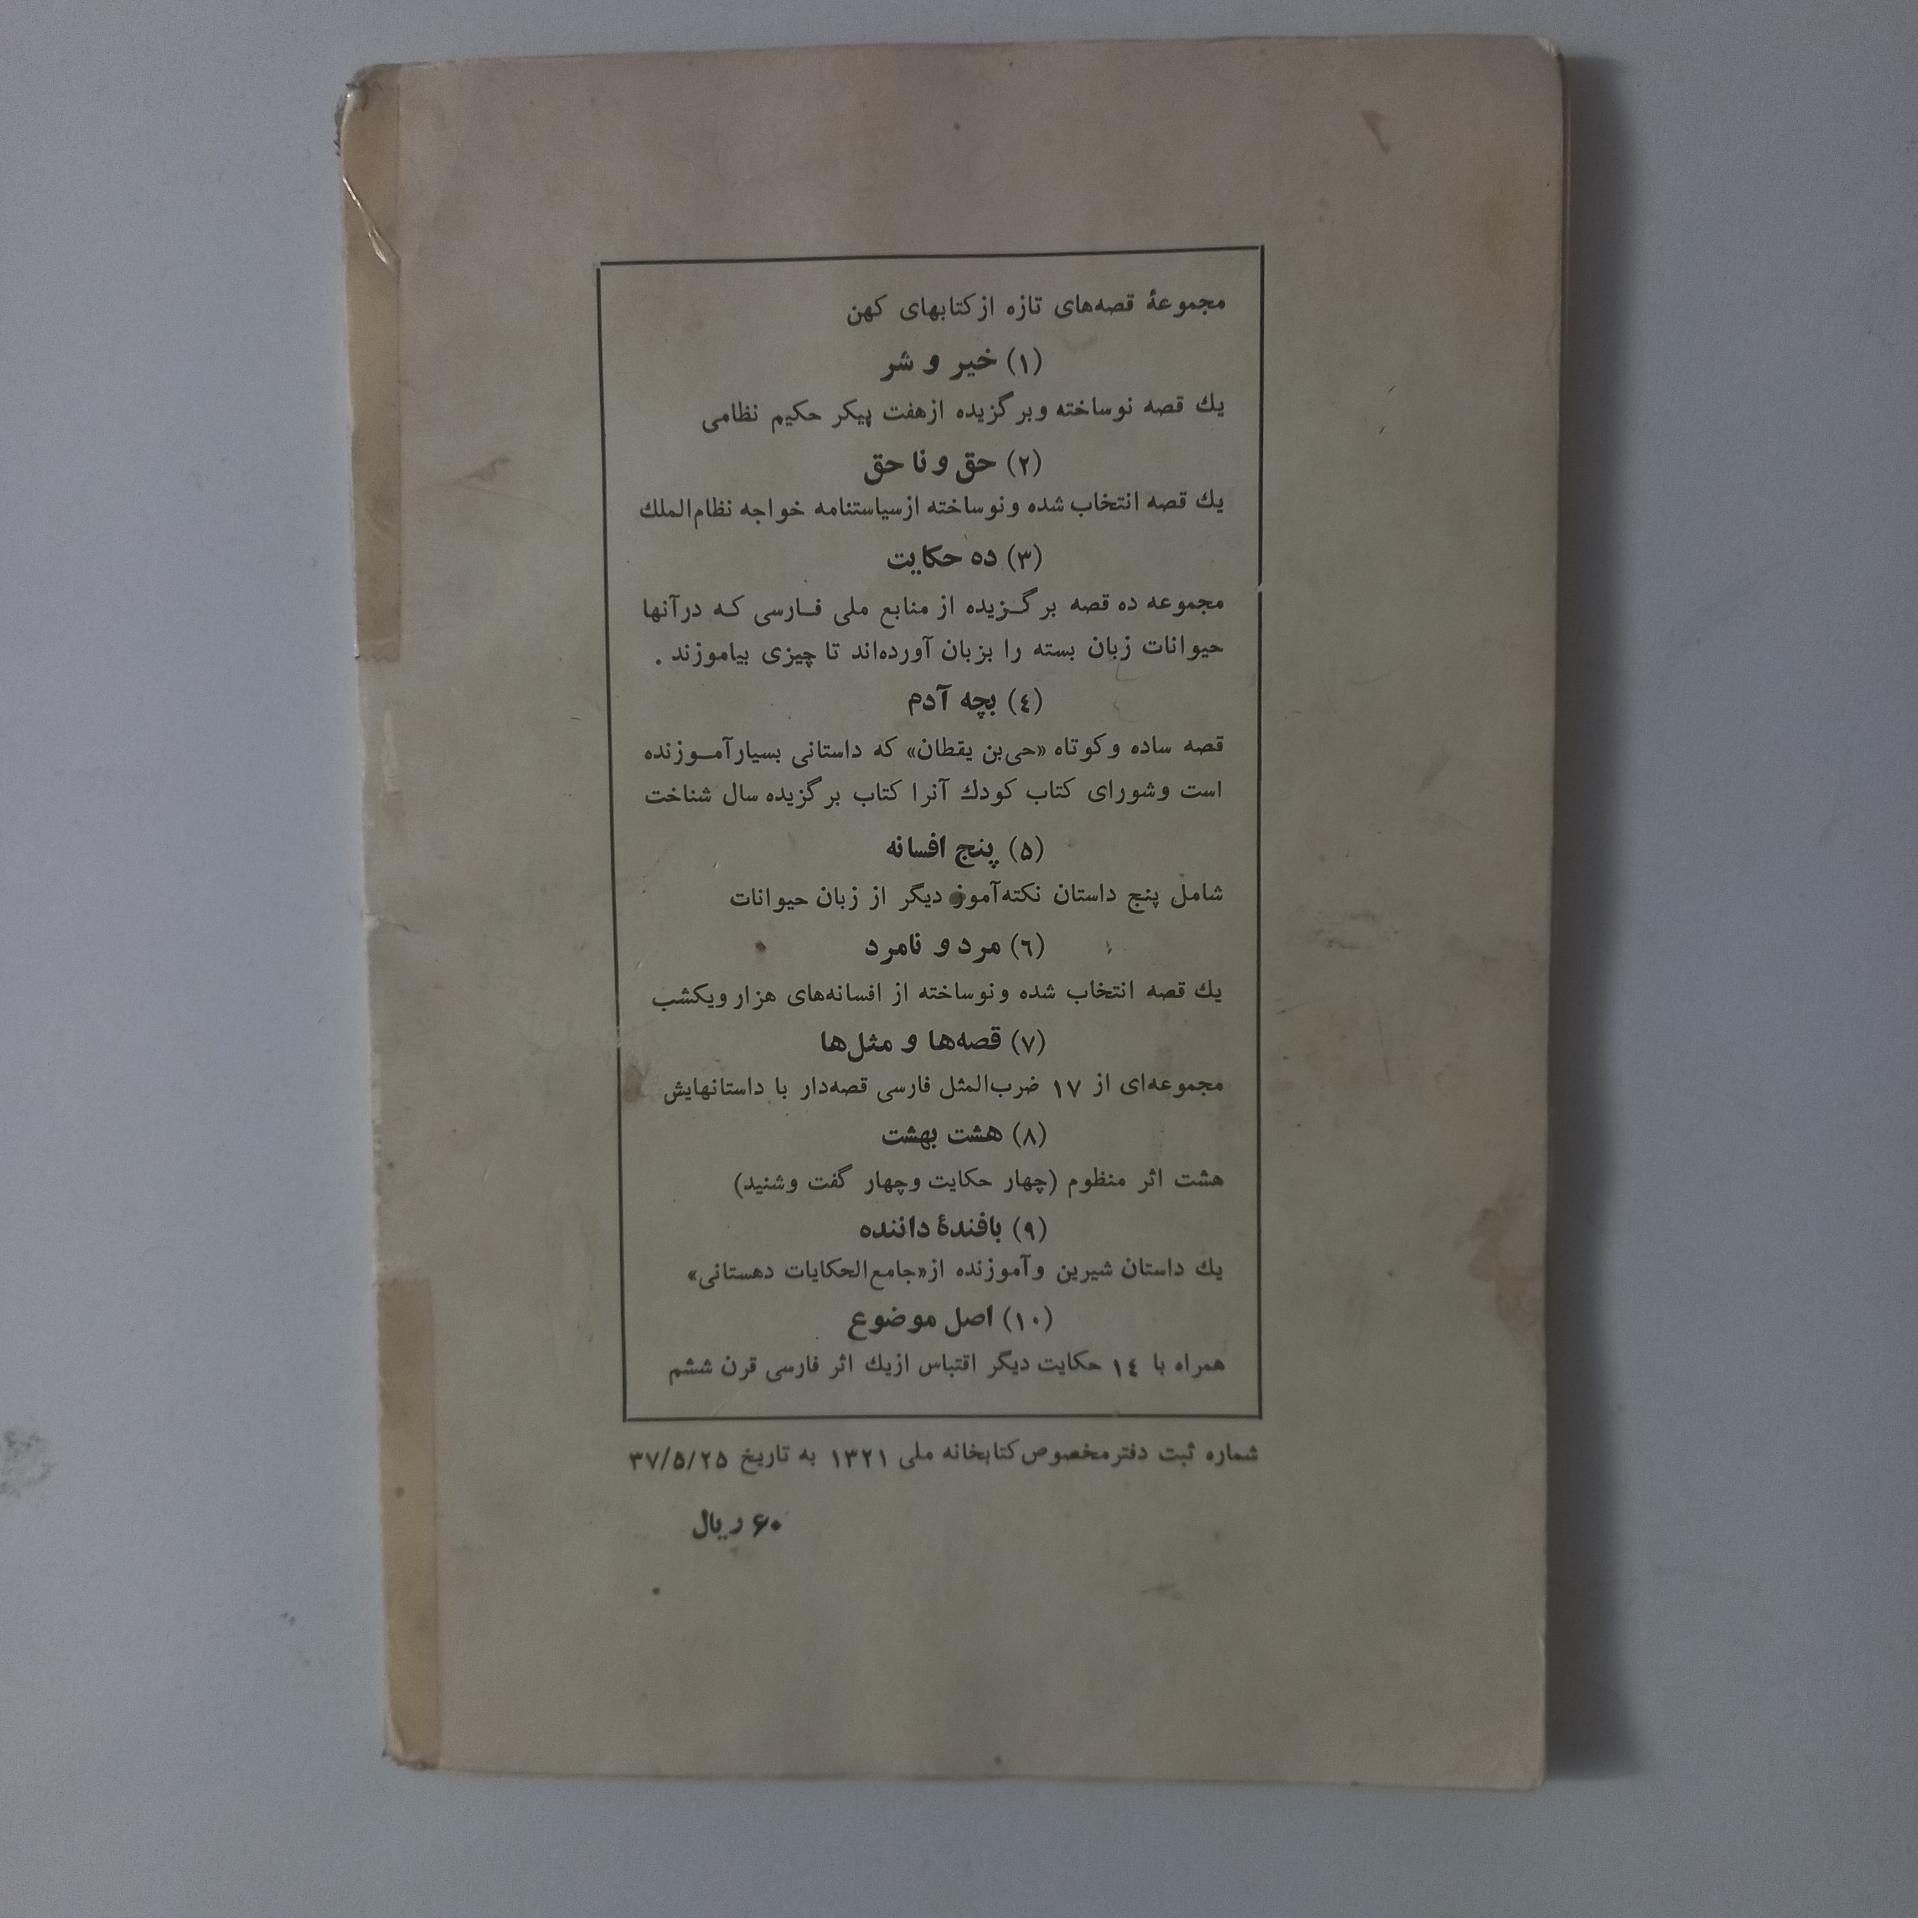 مجموعهٔ قصه‌های تازه از کتابهای کهن
(۱) خیر و شر
یك قصه نوساخته وبرگزیده ازهفت پیکر حکیم نظامی
(۲) حق و نا حق
یك قصه انتخاب شده ونوساخته ازسیاستنامه خواجه نظام‌الملك
(۳) ده حکایت
مجموعه ده قصه برگـزیده از منابع ملی فـارسی کـه درآنها
حیوانات زبان بسته را بزبان آورده‌اند تا چیزی بیاموزند .
(٤) بچه آدم
قصه ساده وکوتاه «حی‌بن یقطان» که داستانی بسیارآمـوزنده
است وشورای کتاب کودك آنرا کتاب برگزیده سال شناخت
(۵) پنج افسانه
شامل پنج داستان نکته‌آموز دیگر از زبان حیوانات
(٦) مرد و نامرد
یك قصه انتخاب شده ونوساخته از افسانه‌های هزار ویکشب
(۷) قصه‌ها و مثل‌ها
مجموعه‌ای از ۱۷ ضرب‌المثل فارسی قصه‌دار با داستانهایش
(۸) هشت بهشت
هشت اثر منظوم (چهار حکایت وچهار گفت وشنید)
(۹) بافندهٔ داننده
یك داستان شیرین وآموزنده از«جامع‌الحکایات دهستانی»
(۱۰) اصل موضوع
همراه با ۱٤ حکایت دیگر اقتباس ازیك اثر فارسی قرن ششم
شماره ثبت دفترمخصوص‌کتابخانه ملی ۱۳۲۱ به تاریخ ۳۷/۵/۲۵
۶۰ ریال